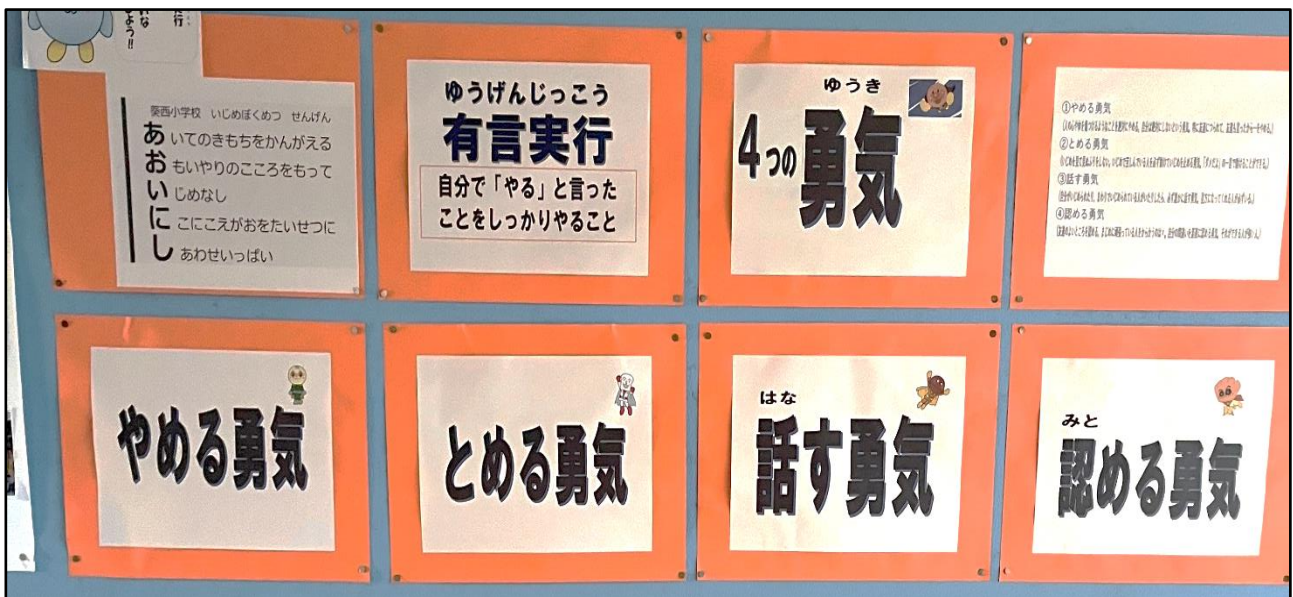 行
いな
よう!!
葵西小学校 いじめぼくめつ せんげん
あいてのきもちをかんがえる
おもいやりのこころをもって
いじめなし
にこにこえがおをたいせつに
しあわせいっぱい
ゆうげんじっこう
有言実行
自分で「やる」と言った
ことをしっかりやること
ゆうき
4つの勇気
①やめる勇気
②とめる勇気
③話す勇気
④認める勇気
やめる勇気
とめる勇気
はな
話す勇気
みと
認める勇気